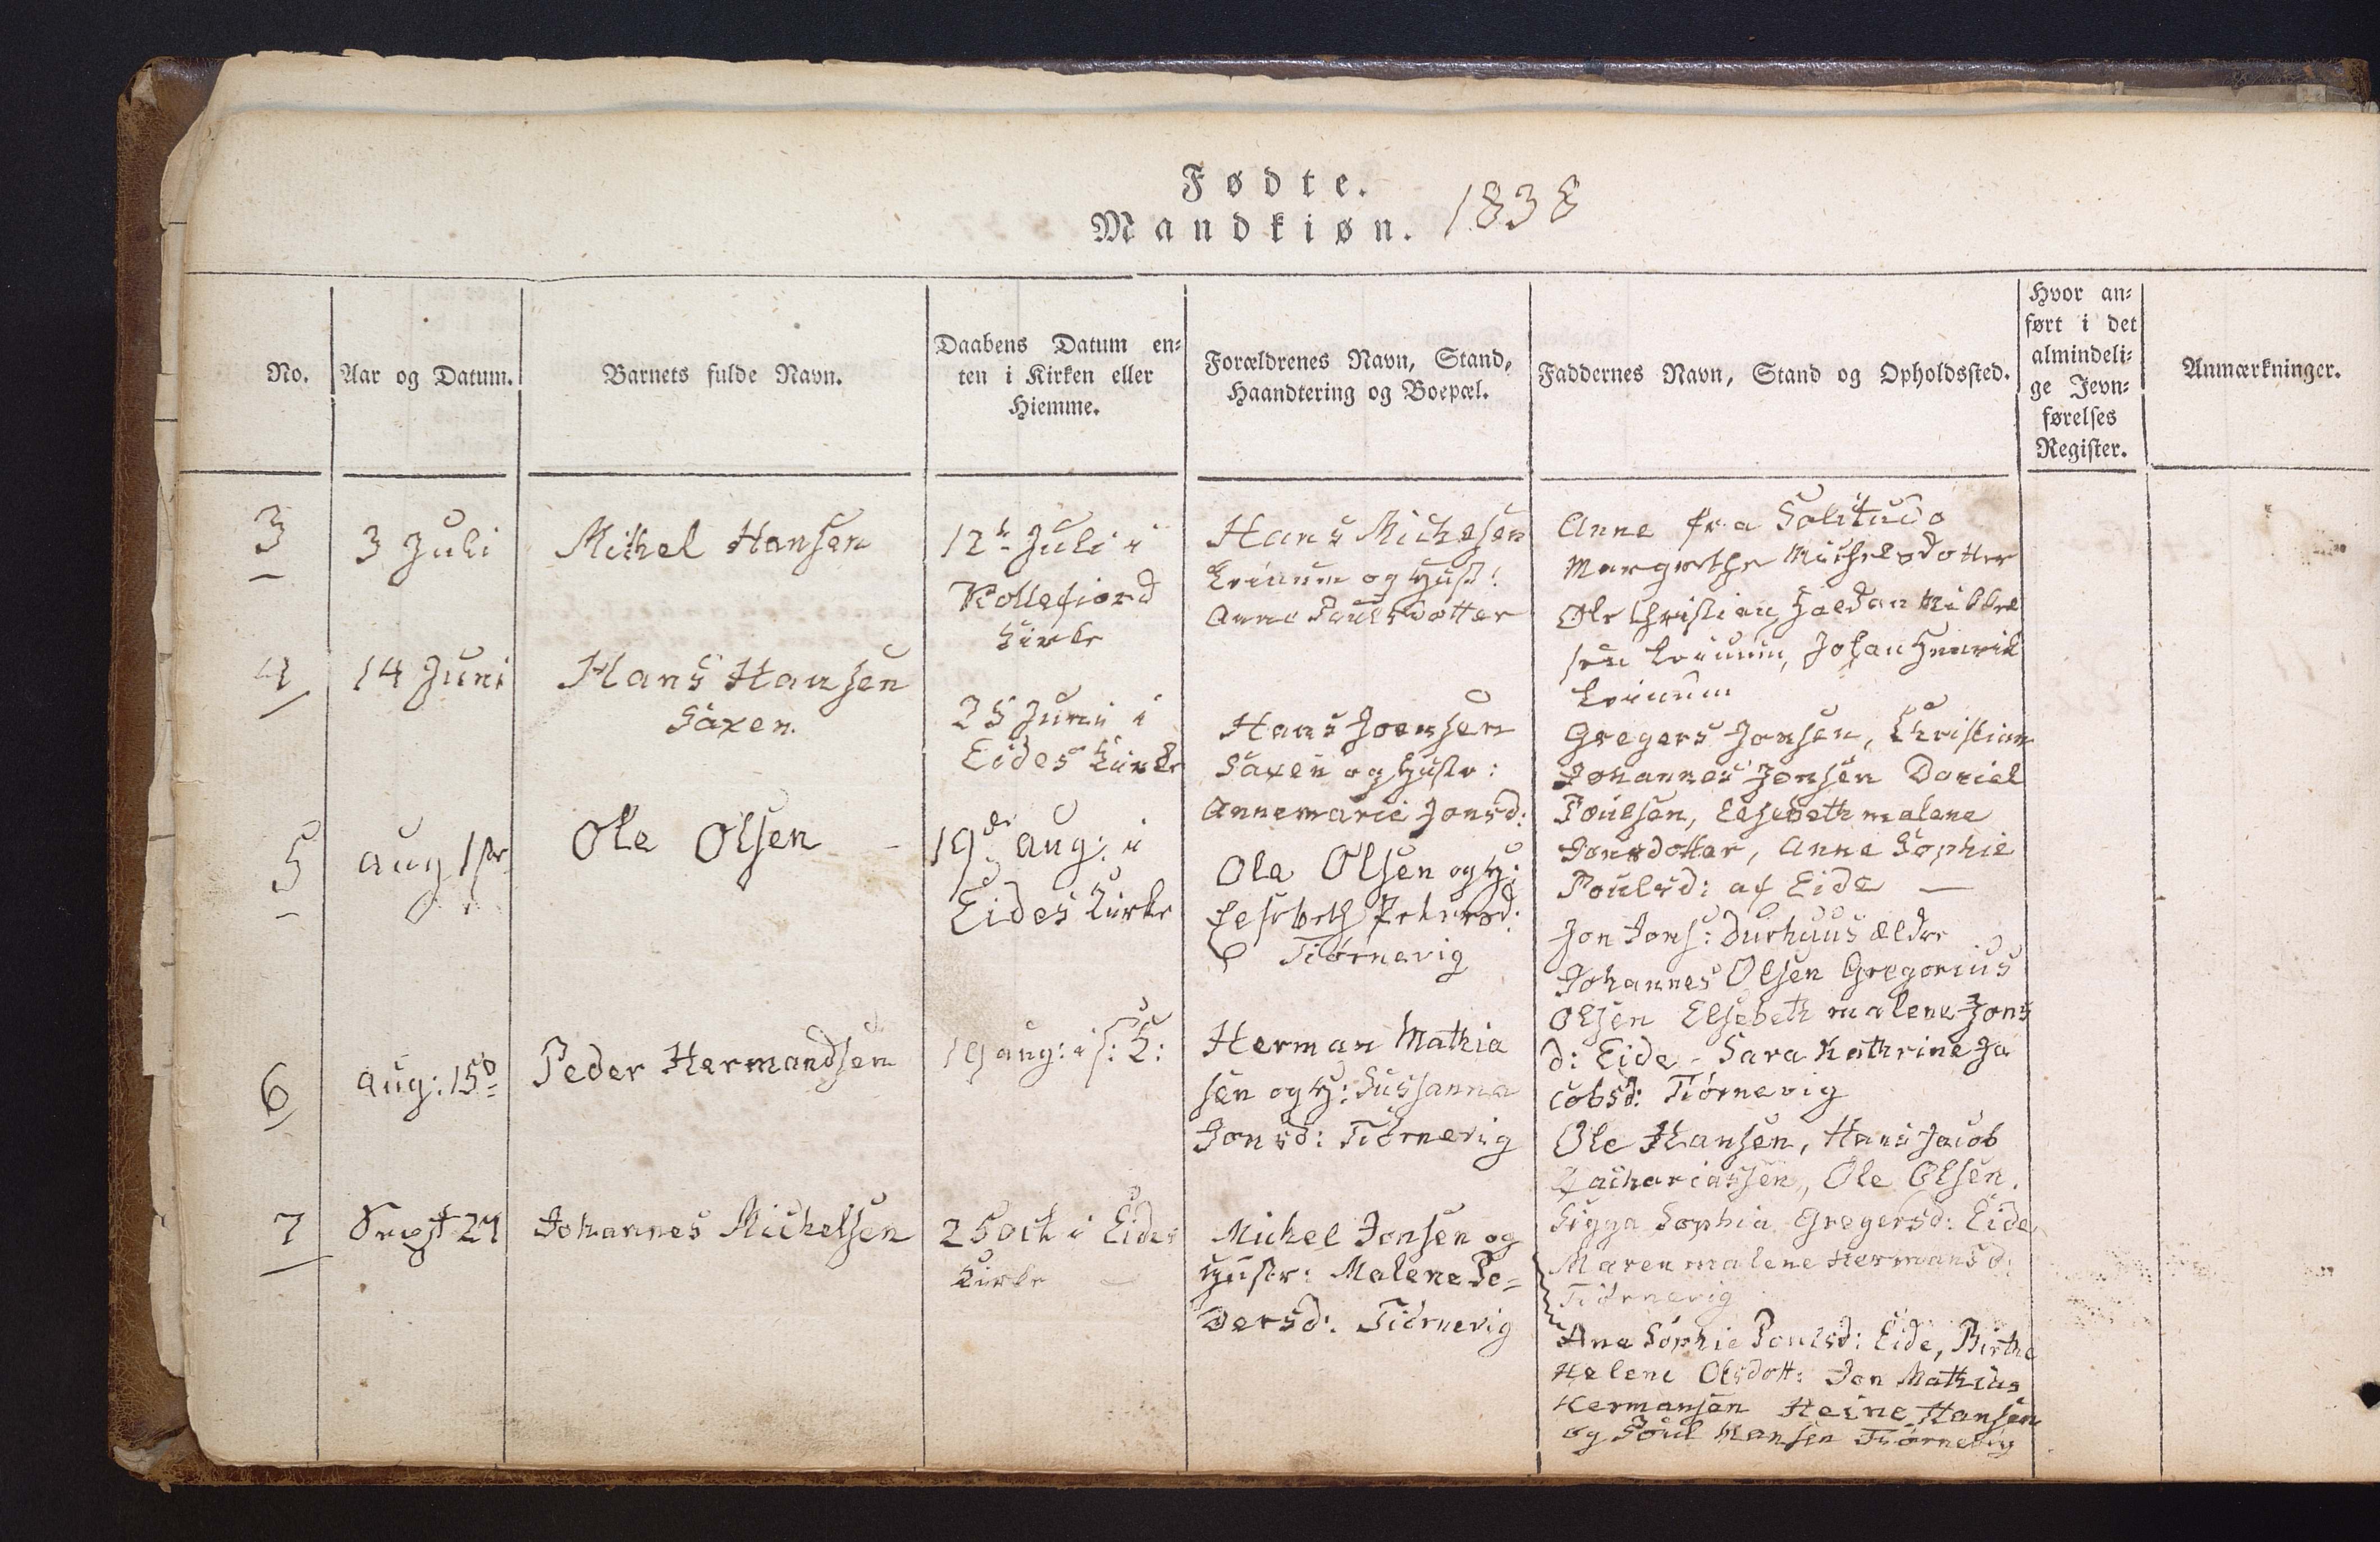 Fødte.
Mandkiøn. 1838
No.
Aar og Datum.
Barnets fulde Navn.
Daabens Datum en-
ten i Kirken eller
Hiemme.
Forældrenes Navn, Stand,
Haandtering og Boepæl.
Faddernes Navn, Stand og Opholdssted.
Hvor an-
ført i det
almindeli-
ge Jevn-
førelses
Register.
Anmærkninger.
3
3 Juli
Mikkel Hansen
12te Juli i
Kollefiord
Kirke
Hans Michelsen
og Hust:
Anne Poulsdotter
Anne fra Solitudo
Margrethe Michelsdotter
Ole Christian, Joedan Mikkel
sen, Johan Henrik
4
14 Juni
Hans Hansen
Saxen.
25 Juni i
Eides Kirke
Hans Joensen
Saxen og Hustr:
Annemarie Jonsd:
Gregers Jonsen, Christian
Johannes Jonsen Daniel
Poulsen, Elsebeth malene
Jonsdotter, Anne Sophie
Poulsd: af Eide —
5
aug 1ste
Ole Olsen –
19de aug: i
Eides Kirke
Ole Olsen og H:
Elsebeth Petersd:
Tiørnevig
Jon Jons: Durhuus ældre
Johannes Olsen Gregorius
Olsen Elsebeth malene Jons
d: Eide – Sara Kathrine Ja
cobsd: Tiørnevig
6
aug: 15d
Peder Hermandsen
19 aug: i s: K:
Herman Mathia
sen og H: Sussanna
Jonsd: Tiørnevig
Ole Hansen, Hans Jacob
Zachariassen, Ole Olsen.
Sigga Sophia Gregersd: Eide
Maren malene Hermansd:
Tiørnevig
7
Sept 27
Johannes Michelsen
25 oct i Eides
Kirke –
Michel Jonsen og
Hustr: Malene Pe=
dersd: Tiørnevig
Ana Sophie Poulsd: Eide, Birthe
Helene Olsdott: Jon Mathias
Hermansen Heine Hansen
og Poul Hansen Tiørnevig